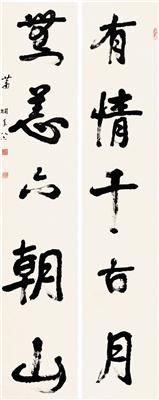 有情千古月
無恙六朝山
蕭嫻